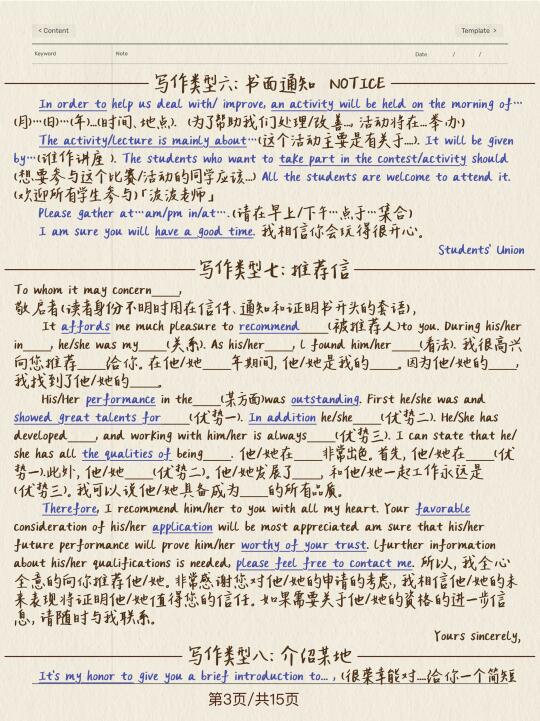 < Content
Template >
Keyword
Note
Date / /
写作类型六: 书面通知 NOTICE
In order to help us deal with/ improve, an activity will be held on the morning of…
(月)…(日)…(年)...(时间、地点). (为了帮助我们处理/改善…, 活动将在…举办)
The activity/lecture is mainly about…(这个活动主要是有关于....). It will be given
by…(谁作讲座 ). The students who want to take part in the contest/activity should
(想要参与这个比赛/活动的同学应该...) All the students are welcome to attend it.
(欢迎所有学生参与)「波波老师」
Please gather at…am/pm in/at….(请在早上/下午…点于…集合)
I am sure you will have a good time. 我相信你会玩得很开心。
Students' Union
写作类型七: 推荐信
To whom it may concern____,
敬启者(读者身份不明时用在信件、通知和证明书开头的套语),
It affords me much pleasure to recommend____(被推荐人)to you. During his/her
in____, he/she was my____(关系). As his/her____, l found him/her____(看法). 我很高兴
向您推荐____给你. 在他/她____年期间, 他/她是我的____。因为他/她的____,
我找到了他/她的____。
His/Her performance in the____(某方面)was outstanding. First he/she was and
showed great talents for____(优势一). In addition he/she____(优势二). He/She has
developed____, and working with him/her is always____(优势三). I can state that he/
she has all the qualities of being____. 他/她在____非常出色. 首先, 他/她在____(优
势一).此外, 他/她____(优势二)。他/她发展了____, 和他/她一起工作永远是____
(优势三)。我可以说他/她具备成为____的所有品质。
Therefore, I recommend him/her to you with all my heart. Your favorable
consideration of his/her application will be most appreciated am sure that his/her
future performance will prove him/her worthy of your trust. lfurther information
about his/her qualifications is needed, please feel free to contact me. 所以, 我全心
全意的向你推荐他/她. 非常感谢您对他/她的申请的考虑, 我相信他/她的未
来表现将证明他/她值得您的信任. 如果需要关于他/她的资格的进一步信
息, 请随时与我联系。
Yours sincerely,
写作类型八: 介绍某地
It's my honor to give you a brief introduction to... , (很荣幸能对....给你一个简短
第3页/共15页